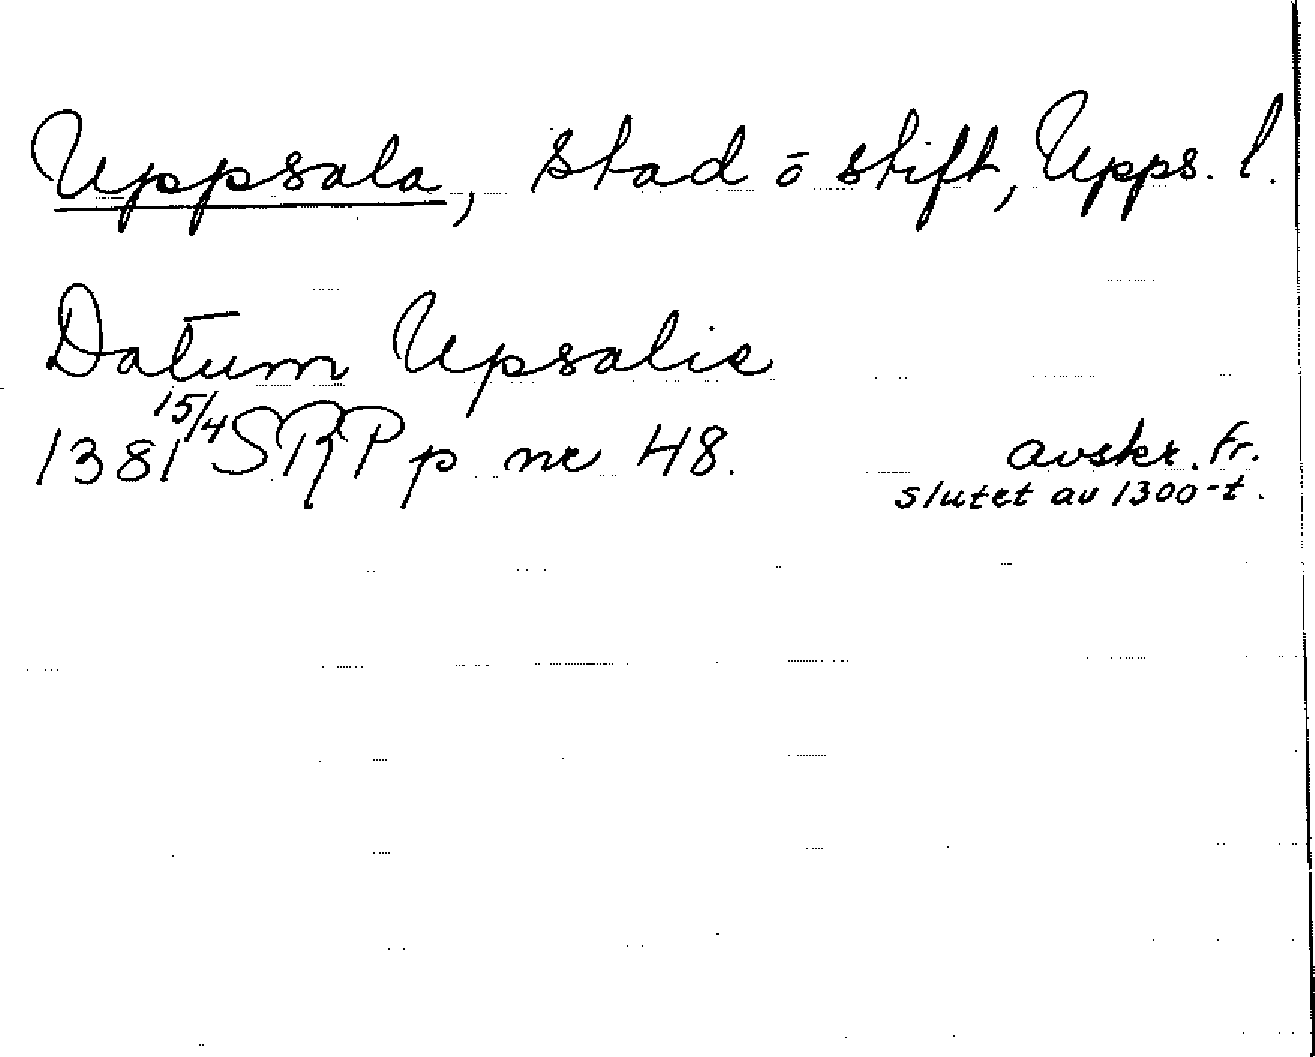 Uppsala, stad ō stift, Upps. l.
Datum Upsalie
1381 15/4 SRP p nr 48. avskr. fr.
slutet av 1300-t.